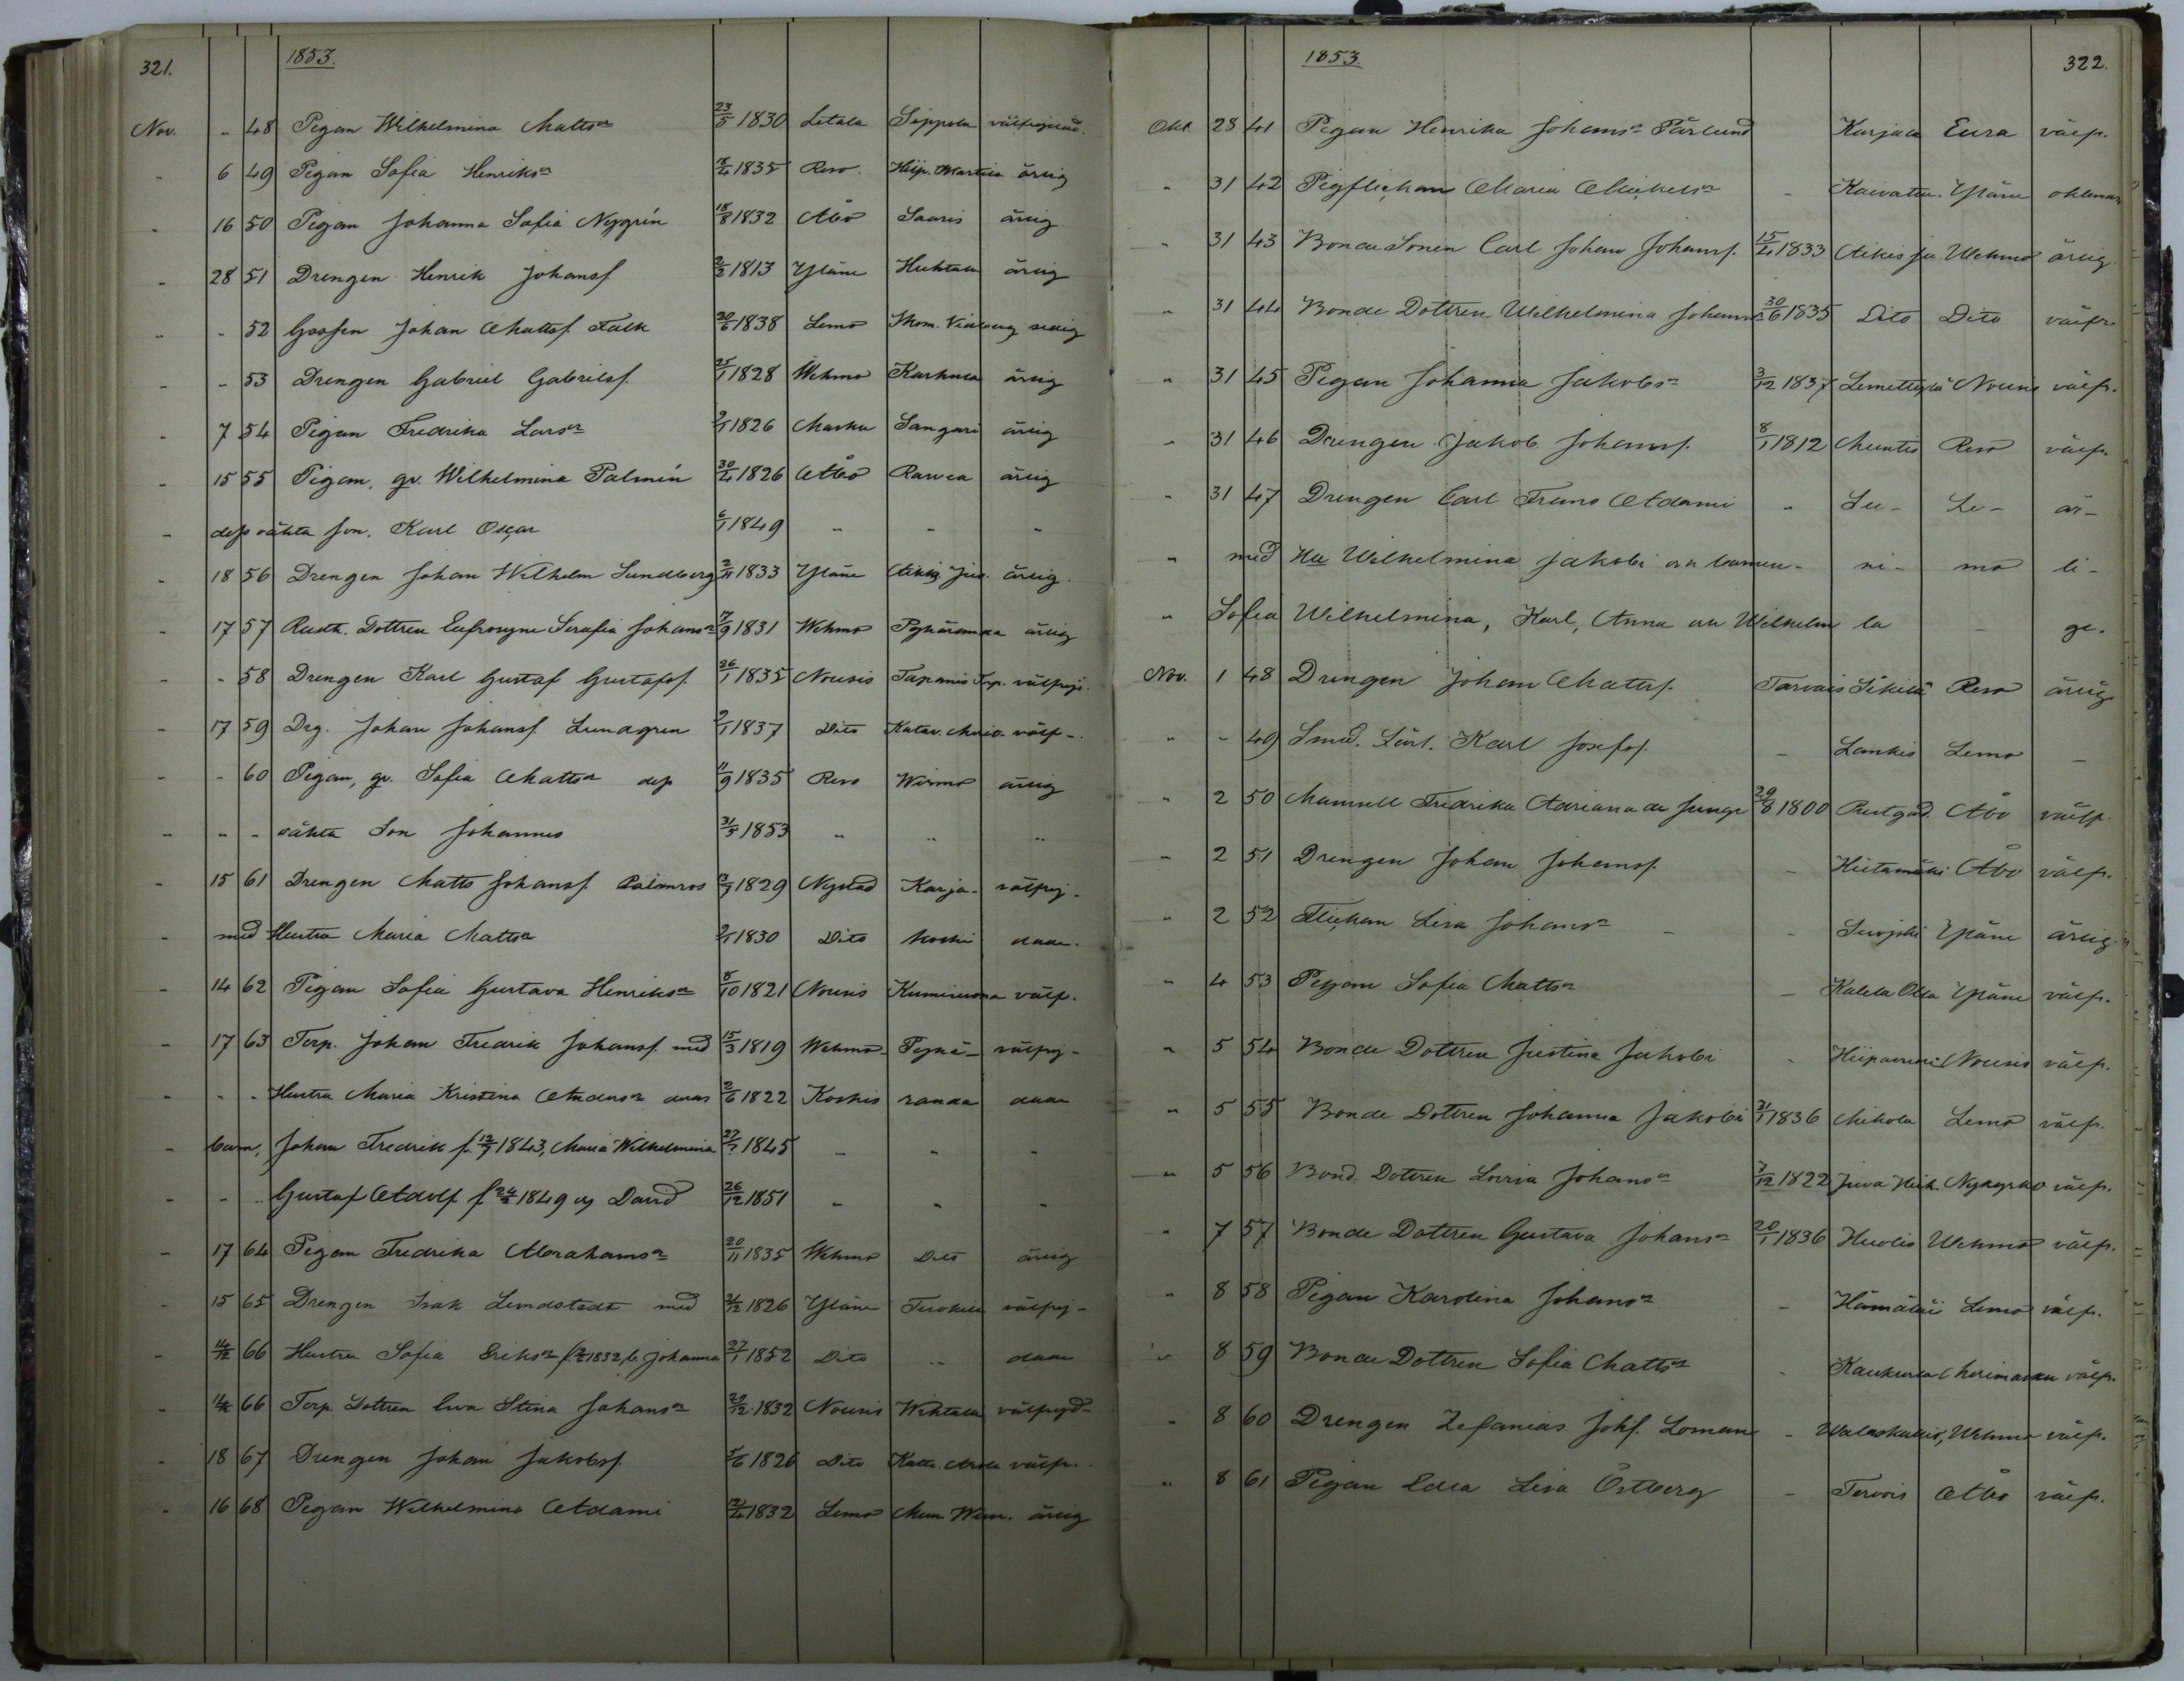 321.
1853.
Nov. - 48 Pigan Wilhelmina Matts:a 23/5 1830 Letala Seppola välfrejdad.
- 6 49 Pigan Sofia Henriks:a 1835 Reso. Heip. Martila ärlig
- 16 50 Pigan Johanna Sofia Nygrén 18/8 1832 Åbo Saaris ärlig
- 28 51 Drengen Henrik Johansf 1813 Yläne Huhtala ärlig
- - 52 Gossen Johan Mattsf. Falk 20/6 1838 Lemo sedig
- - 53 Drengen Gabriel Gabrielsf. 25/1 1828 Wehmo Karhula ärlig
- 7 54 Pigan Fredrika Lars:a 1826 Masku Sangari ärlig
- 15 55 Pigan, qv. Wilhelmina Palmén 30/4 1826 Åbo Raucea ärlig
- dess oäkta son, Karl Oscar 6/1 1849 - - -
- 18 56 Drengen Johan Wilhelm Sundberg 2/11 1833 Yläne ärlig.
- 17 57 Rusth. Dottren Eufrosyne Serafia Johans:a 7/9 1831 Wehmo Pyhäranda ärlig
- - 58 Drengen Karl Gustaf Gustafsf. 26/1 1835 Nousis Tapanis Torp. välfrejd.
- 17 59 Drg. Johan Johansf. Lundgren 1837 Dito välf-
- - 60 Pigan, qv. Sofia Matts:a dess 11/9 1835 Reso Wirmo ärlig
- - - oäkta Son Johannes 31/5 1853 - -
- 15 61 Drengen Matts Johansf. Palmros 1829 Nystad Karja- välfrej-
- med Hustru Maria Matts:a 1830 Dito koski dade.
- 14 62 Pigan Sofia Gustava Henriks:a 5/10 1821 Nousis välf.
- 17 63 Torp. Johan Fredrik Johansf. med 15/3 1819 Wehmo- Pyhä- välfrej-
- - - Hustru Maria Kristina Anders:a deras 2/6 1822 Koskis randa dade
- barn, Johan Fredrik f. 12/7 1843, Maria Wilhelmina 27/7 1845 - - -
- - - Gustaf Adolf f 24/2 1849 och David 26/12 1851 - - -
- 17 64 Pigan Fredrika Abrahams:a 20/11 1835 Wehmo Dito ärlig
- 15 65 Drengen Isak Lindstedt med 1826 Yläne välfrej-
- 66 Hustru Sofia Eriks:a 1832, b. Johanna 27/1 1852 Dito - dade
- 66 Torp. Dottren Eva Stina Johans:a 29/12 1832 Nousis Wihtala välfrejd-
- 18 67 Drengen Johan Jakobsf. 1826 Dito välfr.
- 16 68 Pigan Wilhelmina Adami 12/4 1832 Lemo ärlig
1853.
322.
Okt. 28 41 Pigan Henrika Johans:a Pärlund Karjala Eura välfr.
- 31 42 Pigflickan Maria Mickels:a - Yläne
- 31 43 Bonde Sonen Carl Johan Johansf. 15/4 1833 Wehmo ärlig
- 31 44 Bonde Dottren Wilhelmina Johans:a 30/6 1835 Dito Dito välfr.
- 31 45 Pigan Johanna Jakobs:a 3/12 1837 Nousis välfr.
- 31 46 Drengen Jakob Johansf. 8/1 1812 Muntis Reso välfr.
- 31 47 Drengen Carl Frans Adami - Lu- Le- är-
- med Hu Wilhelmina Jakobi och barnen - ni- mo li-
- Sofia Wilhelmina, Karl, Anna och Wilhelm la - ge.
Nov. 1 48 Drengen Johan Mattsf. Tarvais Reso ärlig
- - 49 Smed. Lärl. Karl Josefsf. - Lankis Lemo -
- 2 50 Mamsell Fredrika Adriana de Junge 29/8 1800 Prestgård. Åbo välfr.
- 2 51 Drengen Johan Johansf. - Hietamäki Åbo välfr.
- 2 52 Flickan Lisa Johans:a - Yläne ärlig
- 4 53 Pigan Sofia Matts:a - Kalela Olla Yläne välfr.
- 5 54 Bonde Dottren Justina Jakobi - Nousis välfr.
- 5 55 Bonde Dottren Johanna Jakobi 31/1 1836 Mikola Lemo välfr.
- 5 56 Bond. Dottren Lovisa Johans:a 7/12 1822 Juva Heik. Nykyrko välfr.
- 7 57 Bonde Dottren Gustava Johans:a 20/1 1836 Huolis Wehmo välfr.
- 8 58 Pigan Karolina Johans:a - Lemo välfr.
- 8 59 Bonde Dottren Sofia Matts:a - Merimasku välfr.
- 8 60 Drengen Zefanias Johsf. Loman - Walaskallio, Wehmo välfr.
- 8 61 Pigan Edla Lisa Östberg - Tervois Åbo välfr.